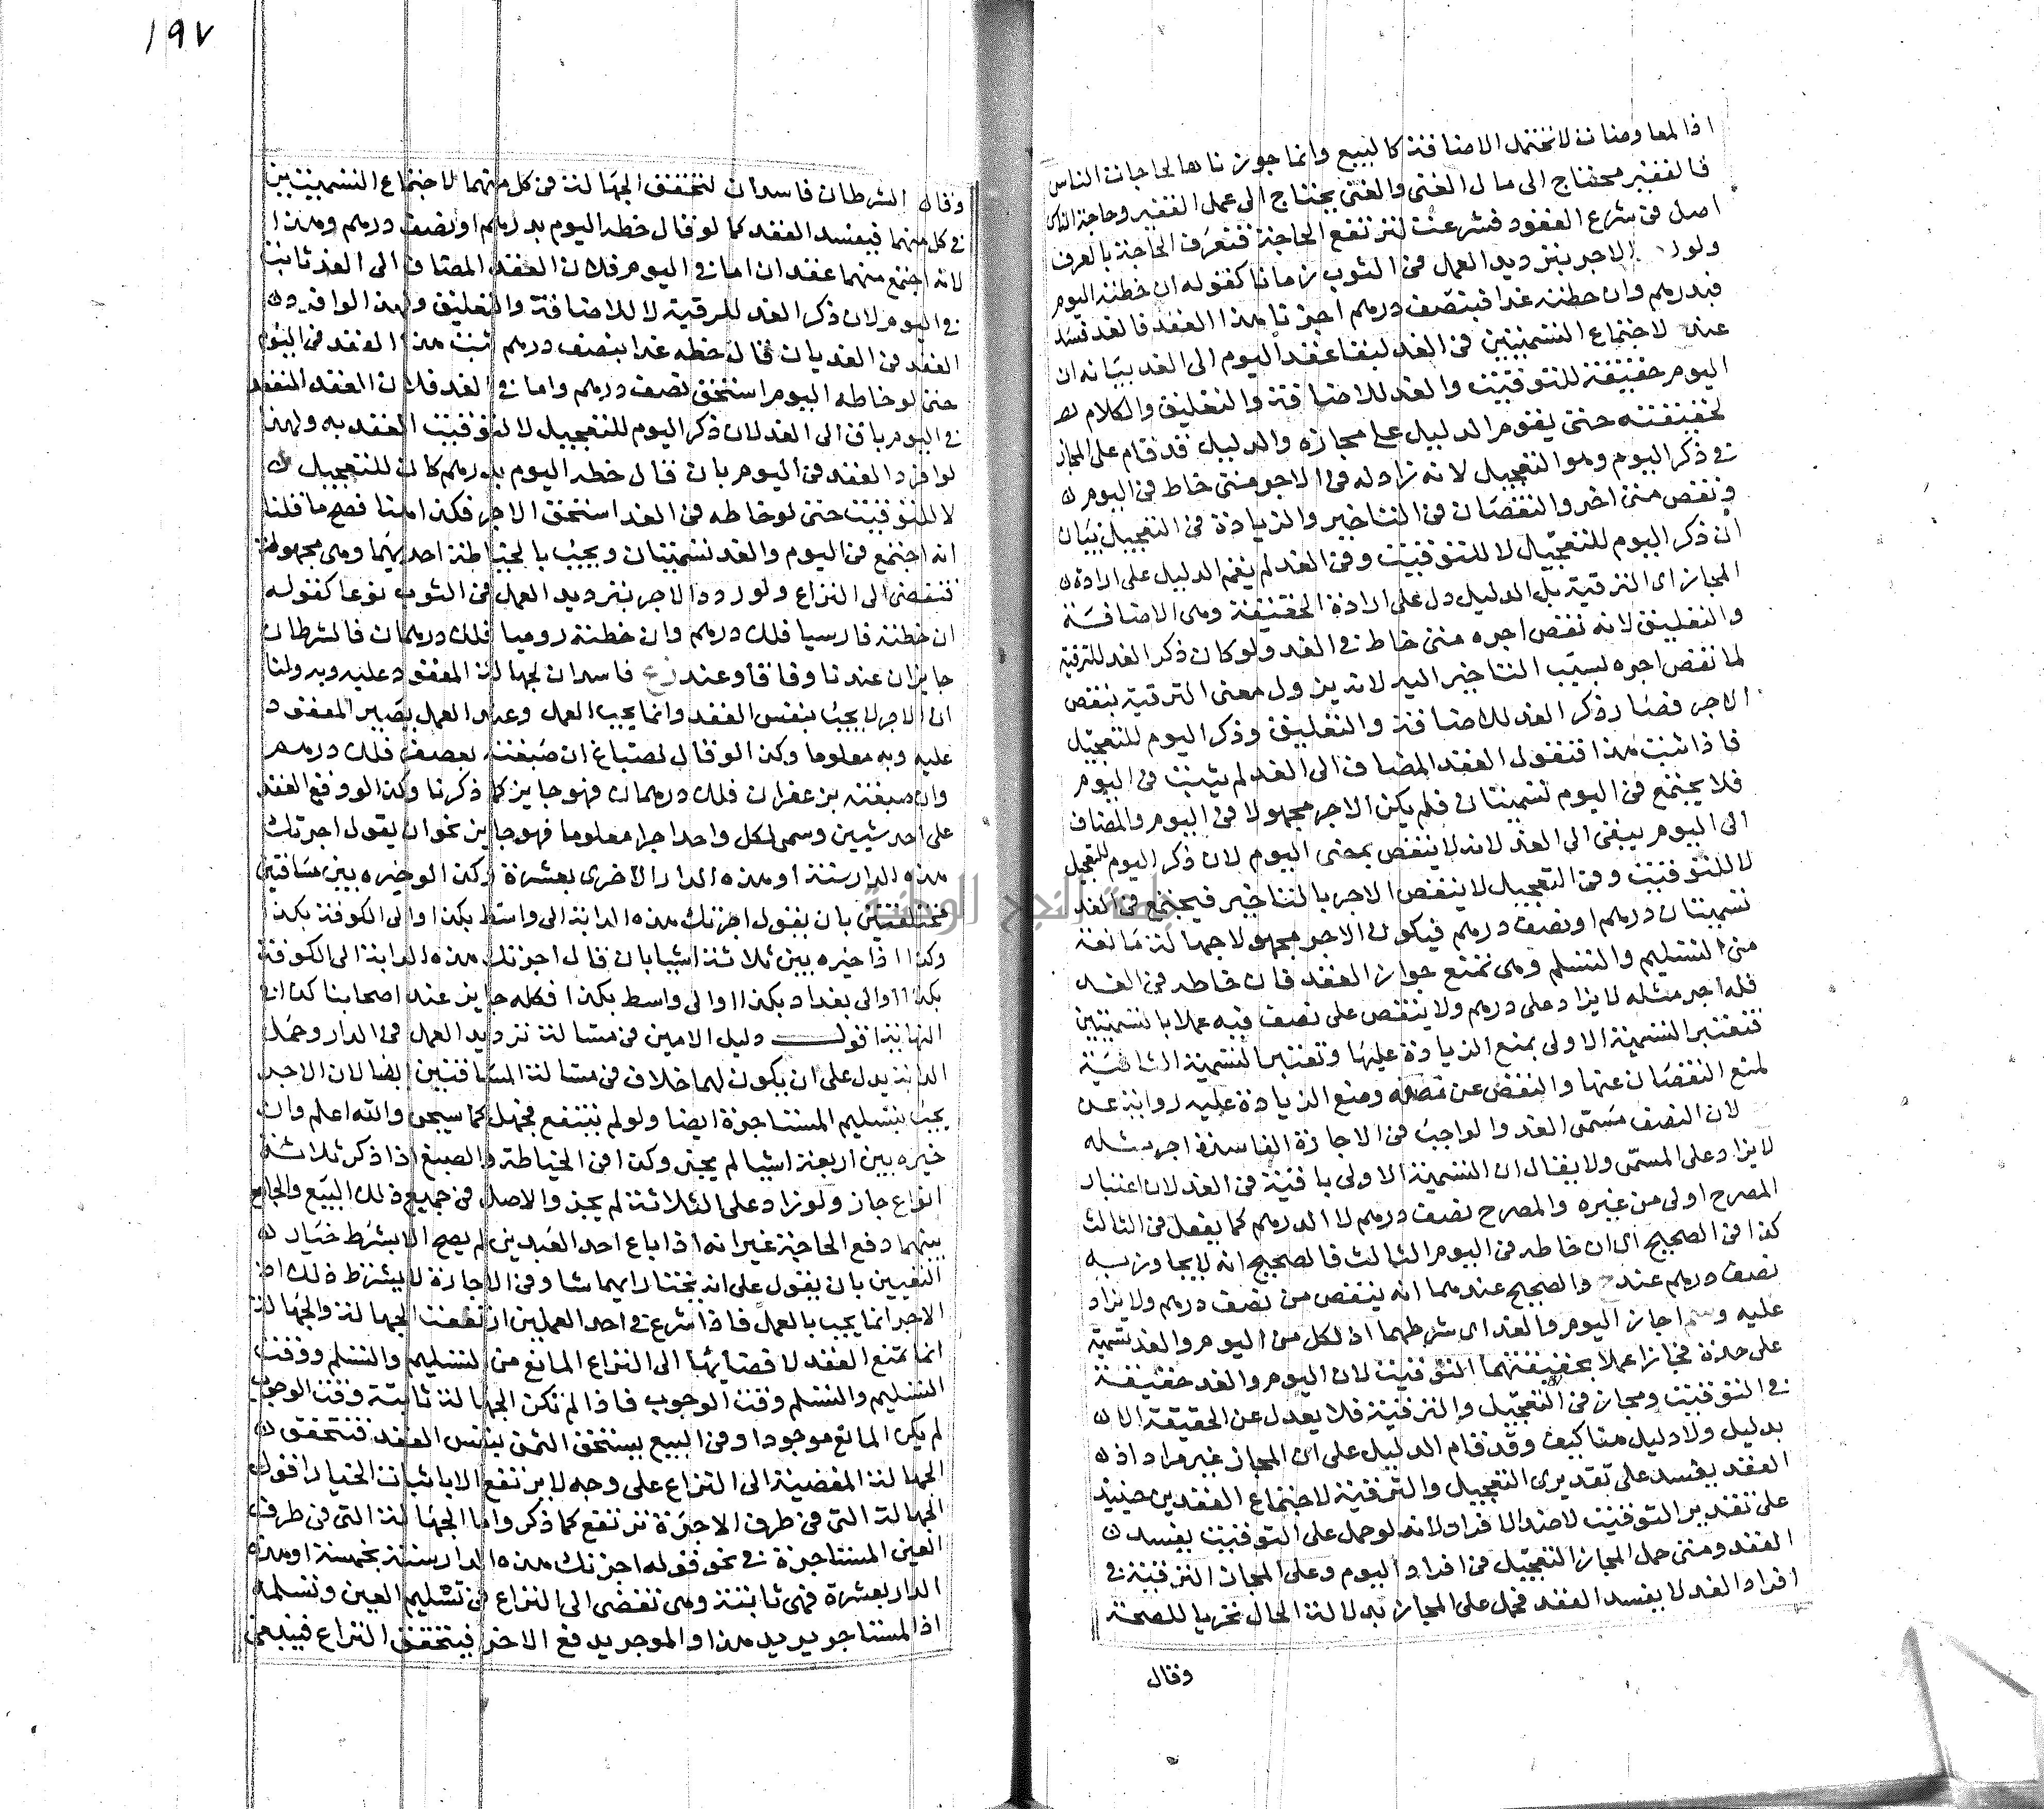 اذ المعاوضات لا تحتمل الاضافة كالبيع وانما جوزناها لحاجات الناس
فالفقير محتاج الى مال الغنى والغنى يحتاج الى عمل الفقير وحاجة الناس
اصل فى شرع العقود فشرعت لترتفع الحاجة فتعرف الحاجة بالعرف
ولو الاجر بترديد العمل فى الثوب زمانا كقوله ان خطته اليوم
فبدرهم وان خطته غدا فبنصف درهم اجزنا هذا العقد فالغد فسد
عند لاجتماع التسميتين فى الغد لبقا عقد اليوم الى الغد بيانه ان
اليوم حقيقة للتوقيت والغد للاضافة والتعليق والكلام
لحقيقته حتى يقوم الدليل على مجازه والدليل قد قام على المجاز
فى ذكر اليوم وهو التعجيل لانه زاد له فى الاجر متى خاط فى اليوم
ونقص متى اخر والنقصان فى التاخير والزيادة فى التعجيل بيان
ان ذكر اليوم للتعجيل لا للتوقيت وفى الغد لم يقم الدليل على ارادة
المجاز اى الترقية بل الدليل دل على ارادة الحقيقة وهى الاضافة
والتعليق لانه نقص اجره متى خاط فى الغد ولو كان ذكر الغد للترقية
لما نقص اجره بسبب التاخير اليه لانه يزول معنى الترقية بنقص
الاجر فصار ذكر الغد للاضافة والتعليق وذكر اليوم للتعجيل
فاذا ثبت هذا فنقول العقد المضاف الى الغد لم يثبت فى اليوم
فلا يجتمع فى اليوم تسميتان فلم يكن الاجر مجهولا فى اليوم والمضاف
الى اليوم يبقى الى الغد لانه لا ينقص بمضى اليوم لان ذكر اليوم للتعجيل
لا للتوقيت وفى التعجيل لا ينقص الاجر بالتاخير فيجتمع فى الغد
تسميتان درهم او نصف درهم فيكون الاجر مجهولا جهالة مانعة
من التسليم والتسلم وهى تمنع جواز العقد فان خاطه فى الغد
فله اجر مثله لا يزاد على درهم ولا ينقص على نصف فيه عملا بالتسميتين
فتعتبر التسمية الاولى بمنع الزيادة عليها وتعتبر التسمية الثانية
لمنع النقصان عنها والنقض عن نصفه ومنع الزيادة عليه رواية عن
لان النصف مسمى الغد والواجب فى الاجارة الفاسدة اجر مثله
لا يزاد على المسمى ولا يقال ان التسمية الاولى باقية فى الغد لان اعتبار
المصرح اولى من غيره والمصرح نصف درهم لا الدرهم كما يفعل فى الثالث
كذا فى الصحيح اى ان خاطه فى اليوم الثالث فالصحيح انه لا يجاوز به
نصف درهم عند والصحيح عندهما انه ينقص من نصف درهم ولا يزاد
عليه اجاز اليوم والغد اى شرطهما اذ لكل من اليوم والغد تسمية
على حدة فجازا عملا بحقيقتهما التوقيت لان اليوم والغد حقيقة
فى التوقيت ومجاز فى التعجيل والترقية فلا يعدل عن الحقيقة الا
بدليل ولا دليل هنا كيف وقد قام الدليل على ان المجاز غير مراد اذ
العقد يفسد على تقديرى التعجيل والترقية لاجتماع العقدين حينئذ
على تقدير التوقيت لا ضد الافراد لانه لو حمل على التوقيت يفسد
العقد ومتى حمل المجاز التعجيل فى افراد اليوم وعلى المجاز الترقية فى
افراد الغد لا يفسد العقد فحمل على المجاز بدلالة الحال تحريا للصحة
وقال
١٩٧
وقال الشرطان فاسدان لتحقق الجهالة فى كل منهما لاجتماع التسميتين
فى كل منهما فيفسد العقد كما لو قال خطه اليوم بدرهم او نصف درهم وهذا
لانه اجتمع منهما عقدان اما فى اليوم فلان العقد المضاف الى الغد ثابت
فى اليوم لان ذكر الغد للرقية لا للاضافة والتعليق ولهذا لو افرد
العقد فى الغد بان قال خطه غدا بنصف درهم ثبت هذا العقد فى اليوم
حتى لو خاطه اليوم استحق نصف درهم واما فى الغد فلان العقد المنعقد
فى اليوم باق الى الغد لان ذكر اليوم للتعجيل لا لتوقيت العقد به ولهذا
لو افرد العقد فى اليوم بان قال خطه اليوم بدرهم كان للتعجيل
لا للتوقيت حتى لو خاطه فى الغد استحق الاجر فكذا هنا فصح ما قلنا
انه اجتمع فى اليوم والغد تسميتان ويجب بالخياطة احديهما وهى مجهولة
فتفضى الى النزاع ولو ردد الاجر بترديد العمل فى الثوب نوعا كقوله
ان خطته فارسيا فلك درهم وان خطته روميا فلك درهمان فالشرطان
جايزان عندنا وفاقا وعند زفر فاسدان لجهالة المعقود عليه وبدولنا
ان الاجر لا يجب بنفس العقد وانما يجب العمل وعند العمل يصير المعقود
عليه وبه معلوما وكذا لو قال لصباغ ان صبغته بعصفر فلك درهم
وان صبغته بزعفران فلك درهمان فهو جايز كما ذكرنا وكذا لو وقع العقد
على احد شيئين وسمى لكل واحد اجرا معلوما فهو جايز نحو ان يقول اجرتك
هذه الدار ستة او هذه الدار الاخرى بعشرة وكذا لو خيره بين مسافتين
مختلفتين بان يقول اجرتك هذه الدابة الى واسط بكذا او الى الكوفة بكذا
وكذا اذا خيره بين ثلاثة اشيا بان قال اجرتك هذه الدابة الى الكوفة
بكذا او الى بغداد بكذا او الى واسط بكذا فكله جايز عند اصحابنا كذا فى
النهاية اقول دليل الامين فى مسالة ترديد العمل فى الدار وحمل
الدابة يدل على ان يكون لهما خلاف فى مسالة المسافتين ايضا لان الاجر
يجب بتسليم المستاجرة ايضا ولو لم ينتفع فحمل كما سيجى والله اعلم وان
خيره بين اربعة اشيا لم يجز وكذا فى الخياطة والصبغ اذا ذكر ثلاثة
انواع جاز ولو زاد على الثلاثة لم يجز والاصل فى جميع ذلك البيع والجامع
بينهما دفع الحاجة غير انه اذا باع احد العبدين لم يصح الا بشرط خيار
التعيين بان يقول على انه يختار ايهما شا وفى الاجارة لا يشترط ذلك اذ
الاجر انما يجب بالعمل فاذا شرع فى احد العملين ارتفعت الجهالة والجهالة
انما تمنع العقد لافضائها الى النزاع المانع من التسليم والتسلم ووقت
التسليم والتسلم وقت الوجوب فاذا لم تكن الجهالة ثابتة وقت الوجوب
لم يكن المانع موجودا وفى البيع يستحق الثمن بنفس العقد فتتحقق
الجهالة المفضية الى النزاع على وجه لا يرتفع الا باثبات الخيار اقول
الجهالة التى فى طرف الاجرة ترتفع كما ذكر واما الجهالة التى فى طرف
العين المستاجرة فى نحو قوله اجرتك هذه الدار سنة بخمسة او هذه
الدار بعشرة فهى ثابتة وهى تفضى الى النزاع فى تسليم العين وتسلمه
اذ المستاجر يريد هذا والموجر يدفع الاخر فيتحقق النزاع فينبغى
جامعة النجاح الوطنية